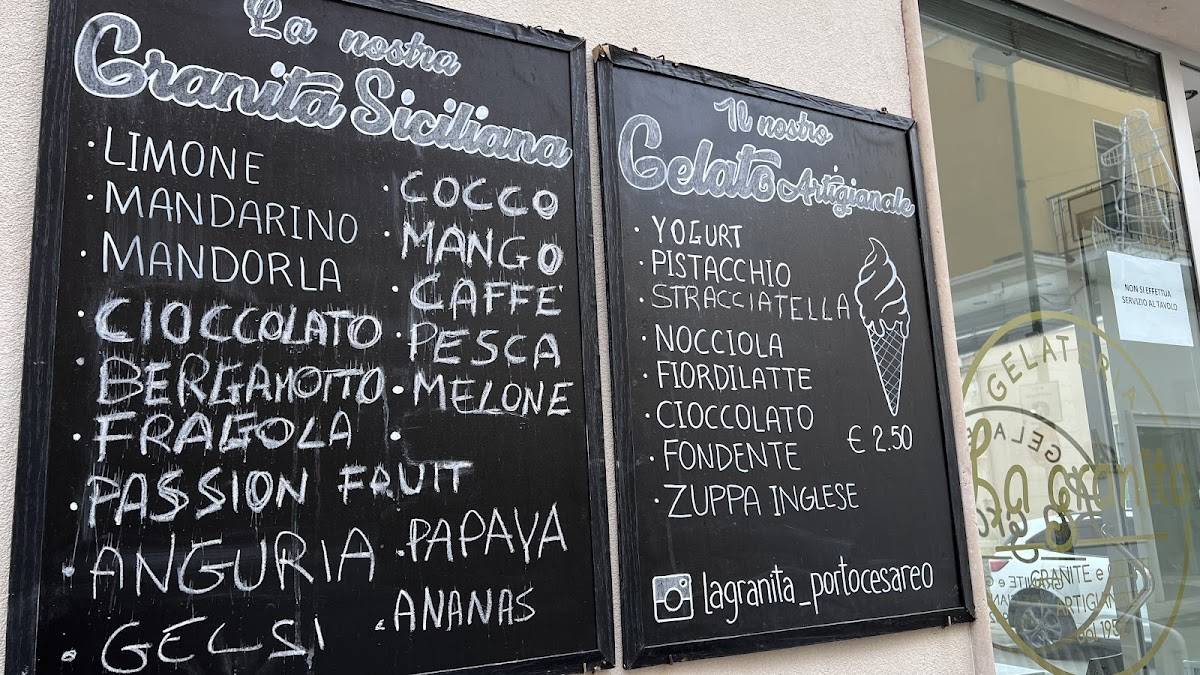 La nostra
Granita Siciliana
· LIMONE
· MANDARINO
· MANDORLA
· CIOCCOLATO
· BERGAMOTTO
· FRAGOLA
· PASSION FRUIT
· ANGURIA
· GELSI
· COCCO
· MANGO
· CAFFE'
· PESCA
· MELONE
·
· PAPAYA
· ANANAS
Il nostro
Gelato Artigianale
· YOGURT
· PISTACCHIO
· STRACCIATELLA
· NOCCIOLA
· FIORDILATTE
· CIOCCOLATO
FONDENTE
· ZUPPA INGLESE
€ 2.50
lagranita_portocesareo
NON SI EFFETTUA
SERVIZIO AL TAVOLO
La granita
GRANITE e